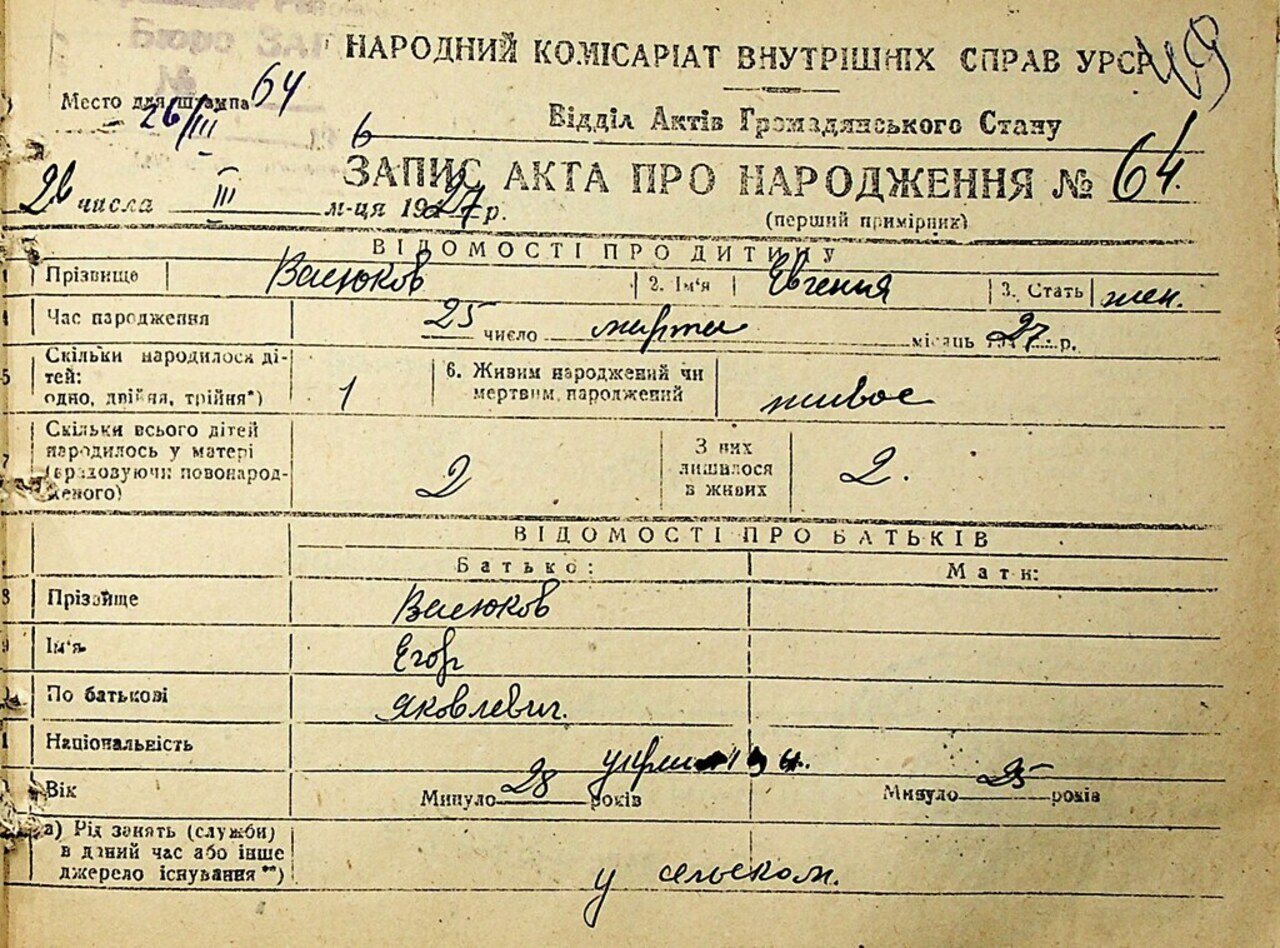 Бюро ЗАГ
№ 64
НАРОДНИЙ КОМІСАРІАТ ВНУТРІШНІХ СПРАВ УРСР
Место для штампа
26/III
Відділ Актів Громадянського Стану
ЗАПИС АКТА ПРО НАРОДЖЕННЯ № 64.
26 числа III м-ця 1927 р.
(перший примірник)
ВІДОМОСТІ ПРО ДИТИНУ
Прізвище Васюков 2. Ім'я Евгения 3. Стать жен.
Час народження 25 число марта місяць 1927 р.
5 Скільки народилося дітей: одно, двійня, трійня*) 1 6. Живим народжений чи мертвим народжений живое
7 Скільки всього дітей народилось у матері (враховуючи новонародженого) 2 З них лишилося в живих 2.
ВІДОМОСТІ ПРО БАТЬКІВ
Батько: Мати:
8 Прізвище Васюков
Ім'я Егор
По батькові Яковлевич.
Національність
Вік Минуло 28 років Минуло 25 років
а) Рід занять (служби) в даний час або інше джерело існування **) у сельском.